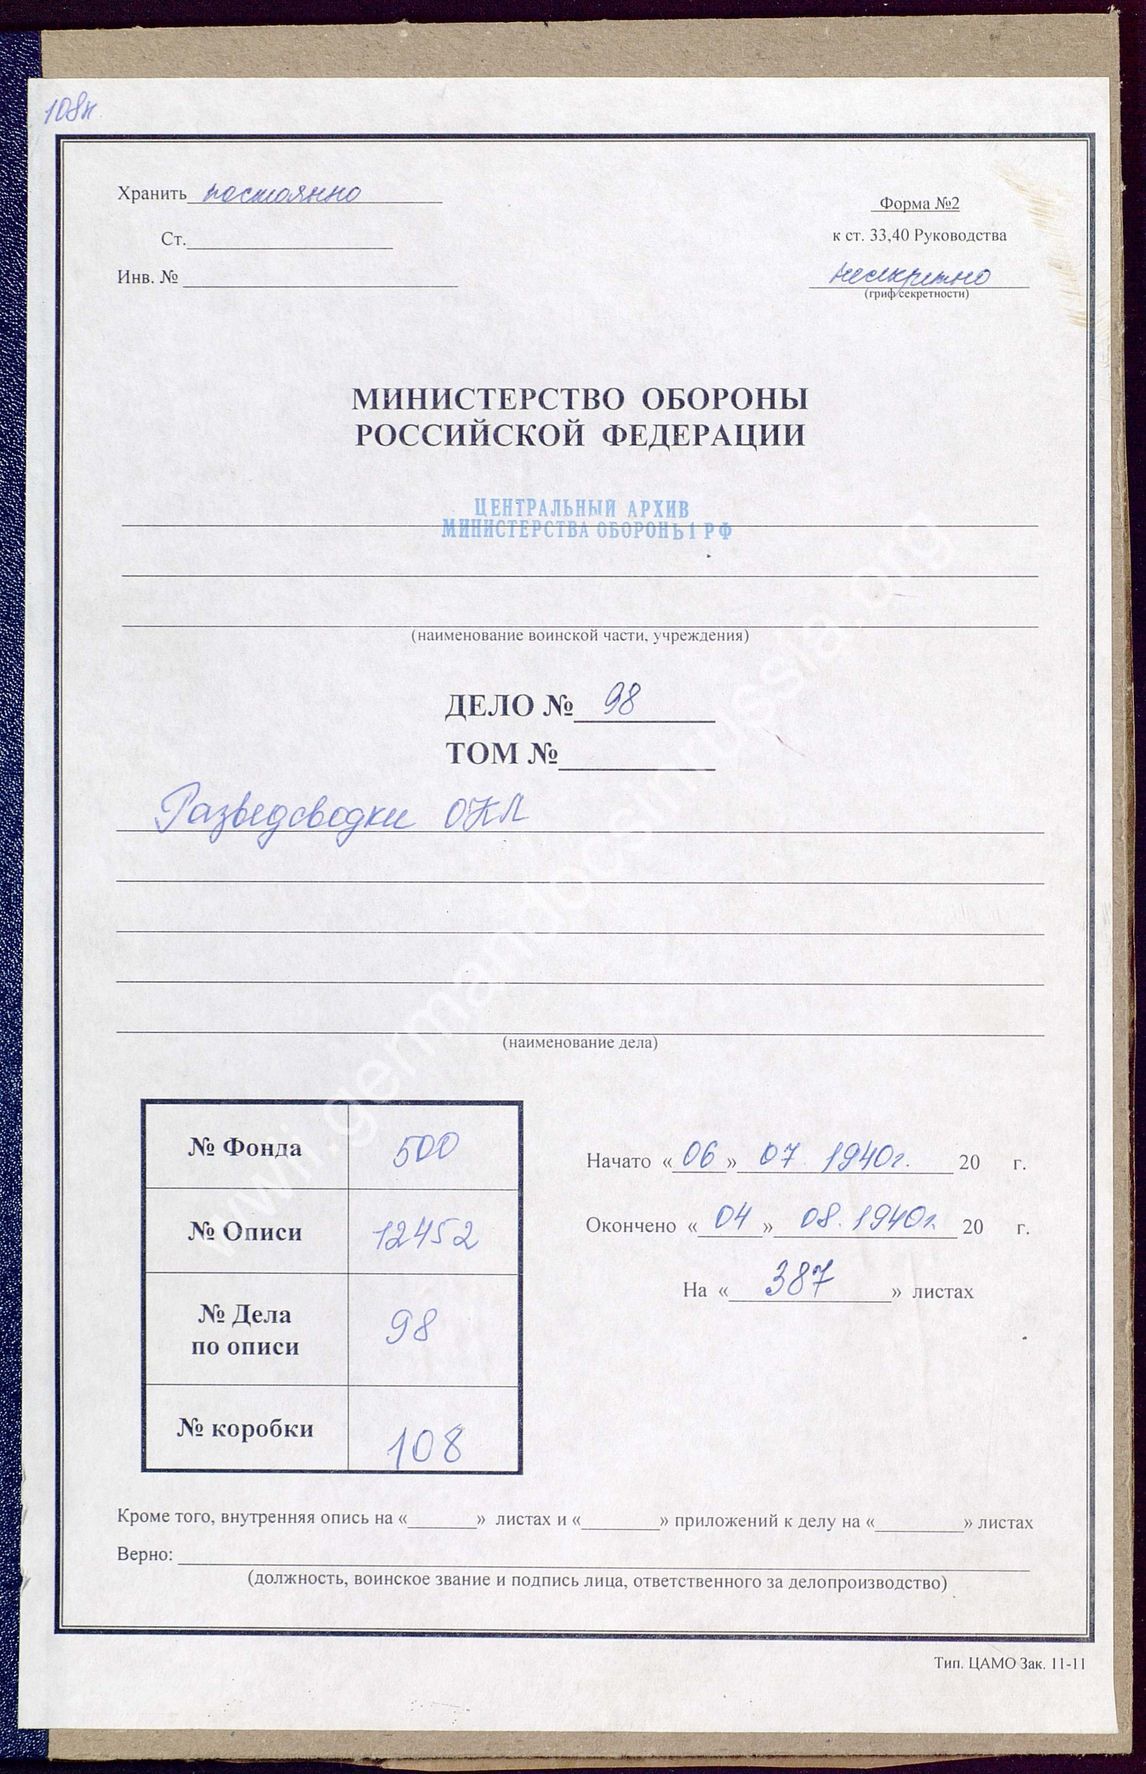 108к
Хранить постоянно
Форма №2
Ст.
к ст. 33,40 Руководства
Инв. №
несекретно
(гриф секретности)
МИНИСТЕРСТВО ОБОРОНЫ
РОССИЙСКОЙ ФЕДЕРАЦИИ
ЦЕНТРАЛЬНЫЙ АРХИВ
МИНИСТЕРСТВА ОБОРОНЫ РФ
(наименование воинской части, учреждения)
ДЕЛО № 98
ТОМ №
Разведсводки ОКЛ
(наименование дела)
№ Фонда 500
№ Описи 12452
№ Дела
по описи 98
№ коробки 108
Начато «06» 07 1940г. 20 г.
Окончено «04» 08. 1940г. 20 г.
На «387» листах
Кроме того, внутренняя опись на « » листах и « » приложений к делу на « » листах
Верно:
(должность, воинское звание и подпись лица, ответственного за делопроизводство)
Тип. ЦАМО Зак. 11-11
www.germandocsinrussia.org